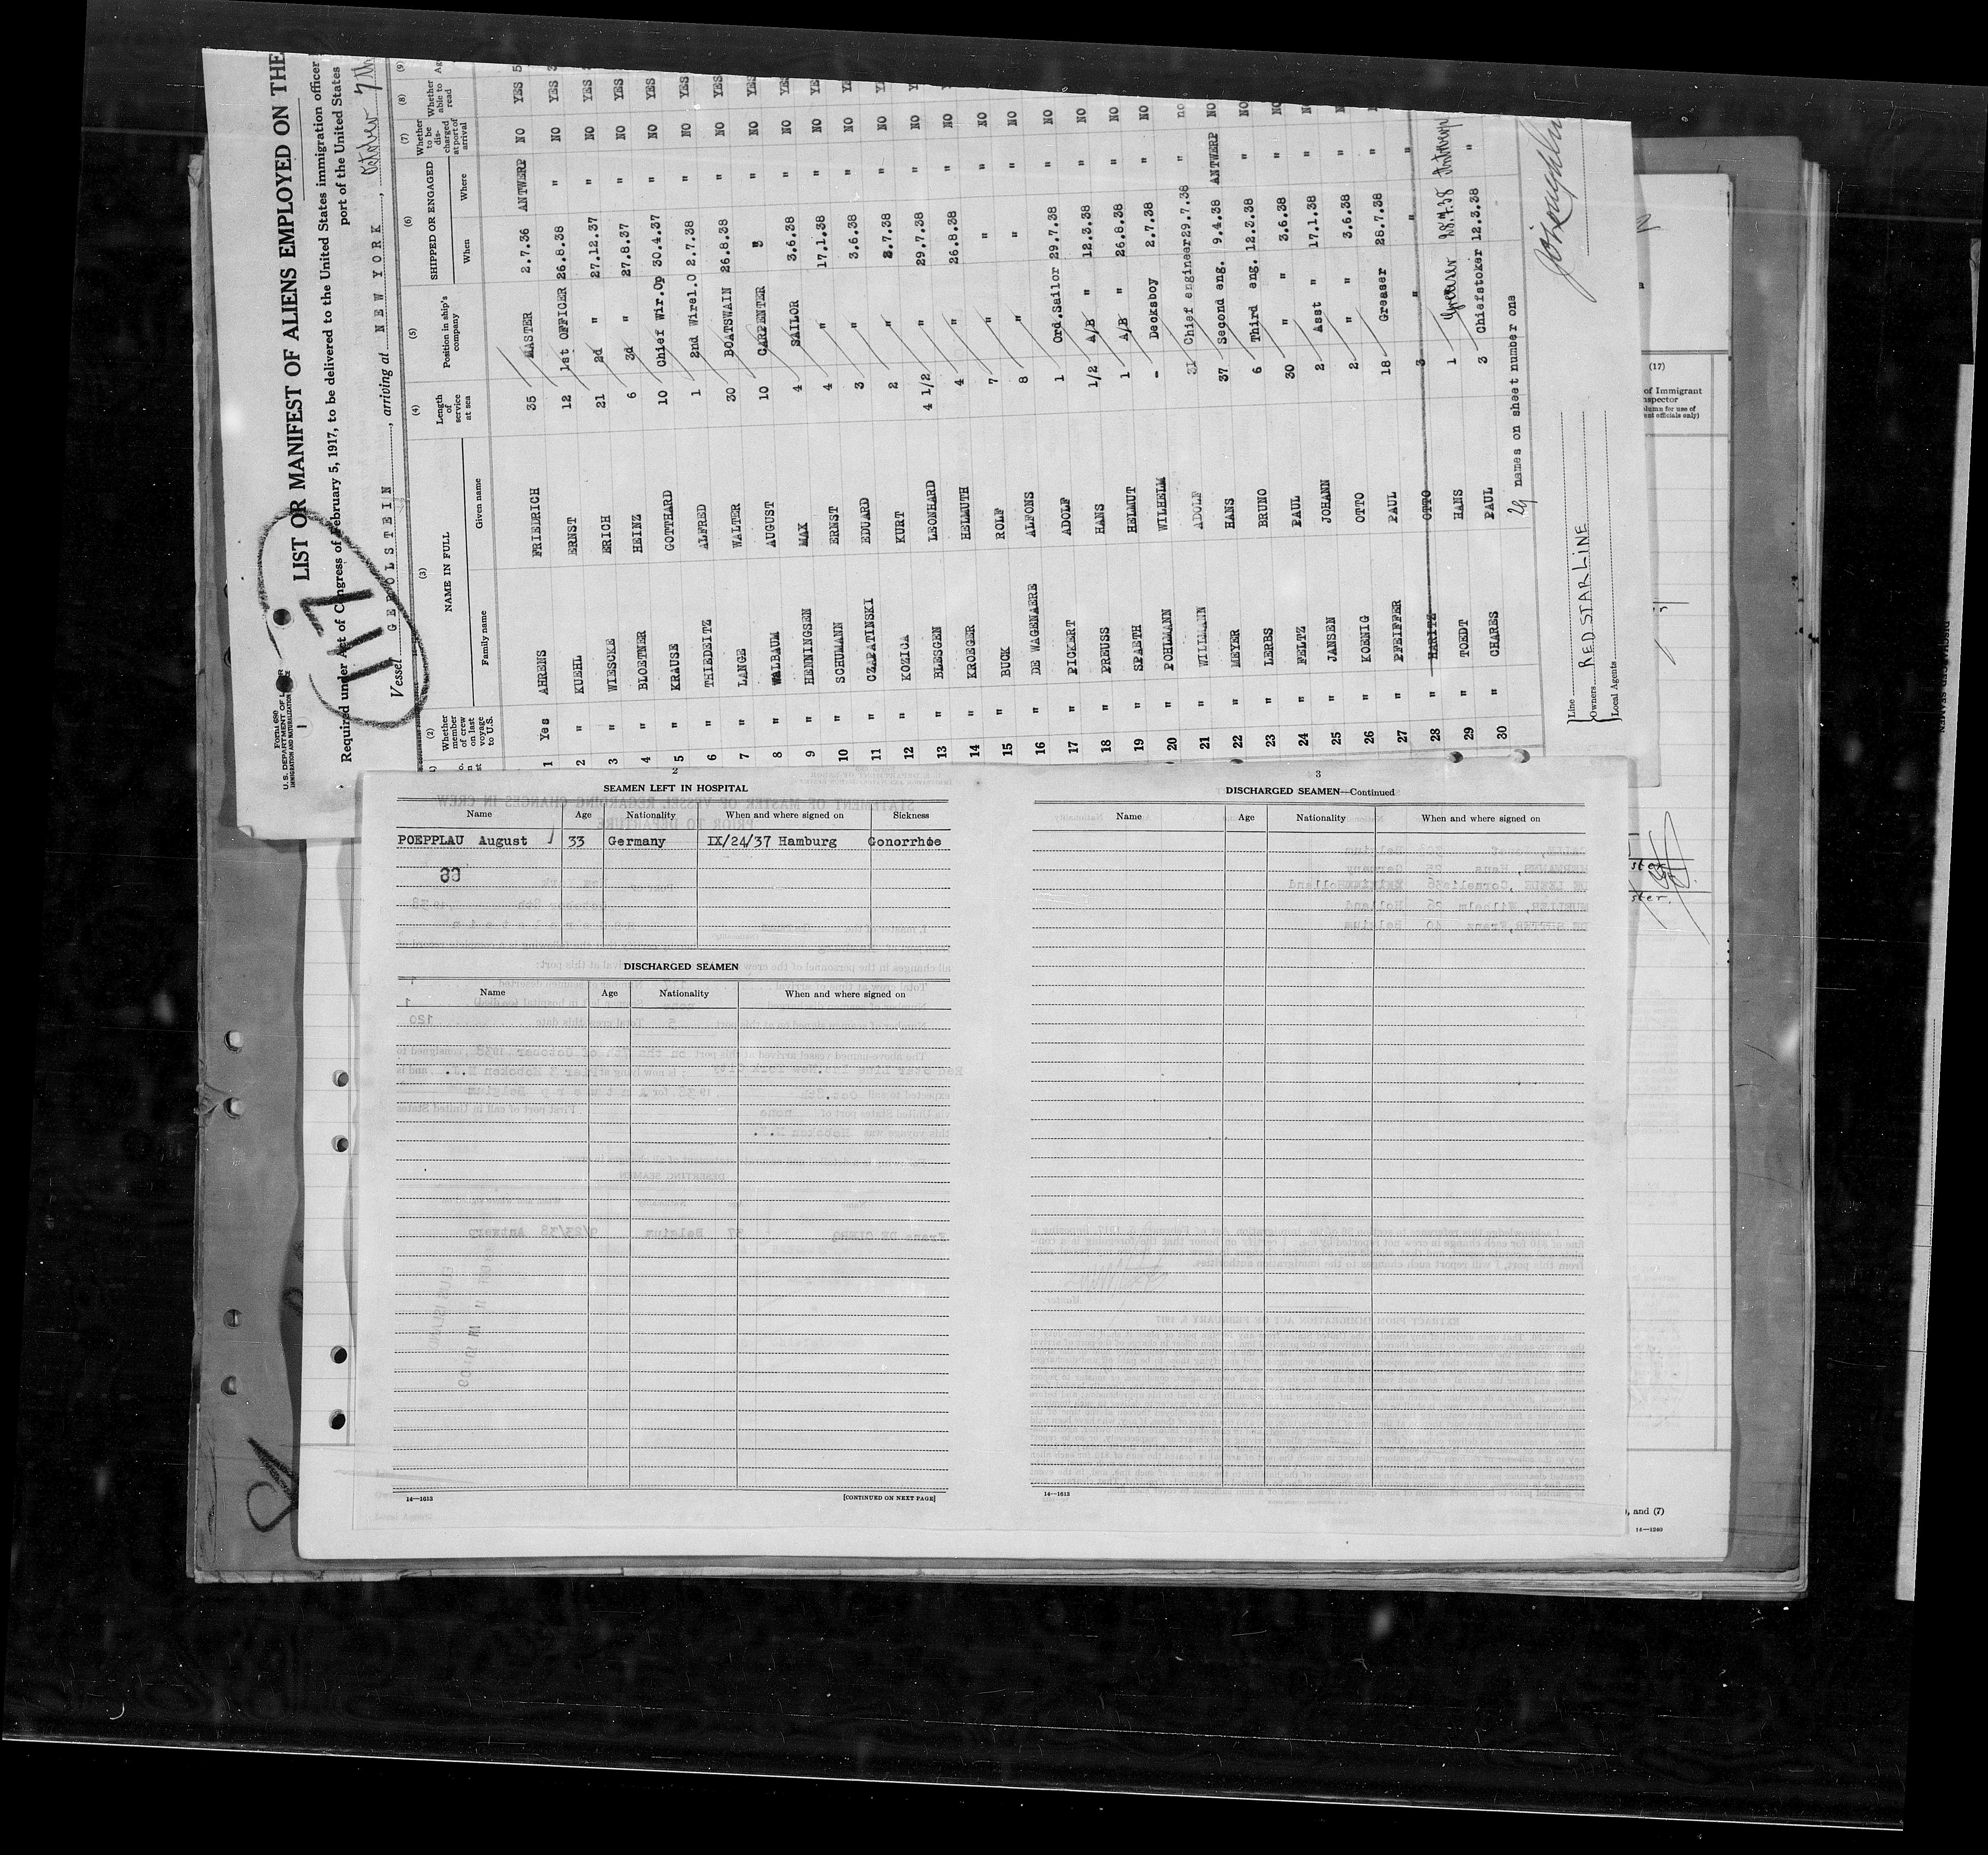 Form 680
U.S. DEPARTMENT OF LABOR
IMMIGRATION AND NATURALIZATION SERVICE
1
117
LIST OR MANIFEST OF ALIENS EMPLOYED ON THE
Required under Act of Congress of February 5, 1917, to be delivered to the United States immigration officer
port of the United States
Vessel GEROLSTEIN, arriving at NEW YORK, October 7th
(2) (3) (4) (5) (6) (7) (8) (9)
Whether member of crew on last voyage to U.S. NAME IN FULL Length of service at sea Position in ship's company SHIPPED OR ENGAGED Whether to be discharged at port of arrival Whether able to read
Family name Given name When Where
1 Yes AHRENS FRIEDRICH 35 MASTER 2.7.36 ANTWERP NO YES 5
2 " KUEHL ERNST 12 1st OFFICER 26.8.38 " NO YES
3 " WIESCKE ERICH 21 2d " 27.12.37 " NO YES
4 " BLOETNER HEINZ 6 3d " 27.8.37 " NO YES
5 " KRAUSE GOTTHARD 10 Chief Wir.Op 30.4.37 " NO YES
6 " THIEDEITZ ALFRED 1 2nd Wirel.O 2.7.38 " NO YES
7 " LANGE WALTER 30 BOATSWAIN 26.8.38 " NO YES
8 " WALBAUM AUGUST 10 CARPENTER " " NO YES
9 " HENNINGSEN MAX 4 SAILOR 3.6.38 " NO
10 " SCHUMANN ERNST 4 " 17.1.38 " NO
11 " CZAPATINSKI EDUARD 3 " 3.6.38 " NO
12 " KOZICA KURT 2 " 2.7.38 " NO
13 " BLESGEN LEONHARD 4 1/2 " 29.7.38 " NO
14 " KROEGER HELMUTH 4 " 26.8.38 " NO
15 " BUCK ROLF 7 " " " NO
16 " DE WAGENAERE ALFONS 8 " " " NO
17 " PICKERT ADOLF 1 Ord.Sailor 29.7.38 " NO
18 " PREUSS HANS 1/2 A/B " 12.3.38 " NO
19 " SPAETH HELMUT 1 A/B " 26.8.38 " NO
20 " POHLMANN WILHELM - Decksboy 2.7.38 " NO
21 " WILLMANN ADOLF 31 Chief engineer 29.7.38 " no
22 " MEYER HANS 37 Second eng. 9.4.38 ANTWERP NO
23 " LERBS BRUNO 6 Third eng. 12.3.38 " NO
24 " FELTZ PAUL 30 " " 3.6.38 "
25 " JANSEN JOHANN 2 Asst " 17.1.38 "
26 " KOENIG OTTO 2 " " 3.6.38 "
27 " PFEIFFER PAUL 18 Greaser 28.7.38 "
28 " HARITZ OTTO 3 " " "
29 " TOEDT HANS 1 Greaser Antwerp
30 " CHARES PAUL 3 Chiefstoker 12.3.38 "
29 names on sheet number one
Line
Owners RED STAR LINE
Local Agents
(17)
of Immigrant
2
SEAMEN LEFT IN HOSPITAL
Name Age Nationality When and where signed on Sickness
POEPPLAU August 33 Germany IX/24/37 Hamburg Gonorrhoe
DISCHARGED SEAMEN
Name Age Nationality When and where signed on
14—1613 [CONTINUED ON NEXT PAGE]
3
DISCHARGED SEAMEN—Continued
Name Age Nationality When and where signed on
14—1613
, and (7)
14—1240